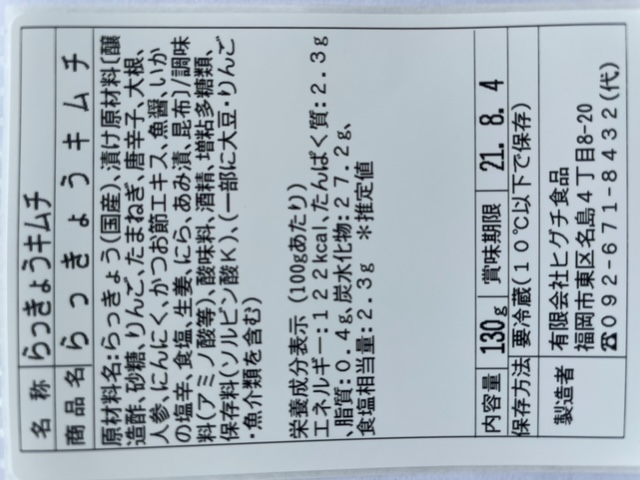 名称 らっきょうキムチ
商品名 らっきょうキムチ
原材料名:らっきょう(国産)、漬け原材料〔醸
造酢、砂糖、りんご、たまねぎ、唐辛子、大根、
人参、にんにく、かつお節エキス、魚醤、いか
の塩辛、食塩、生姜、にら、あみ漬、昆布〕/調味
料(アミノ酸等)、酸味料、酒精、増粘多糖類、
保存料(ソルビン酸K)、(一部に大豆・りんご
・魚介類を含む)
栄養成分表示(100gあたり)
エネルギー:122kcal、たんぱく質:2.3g
、脂質:0.4g、炭水化物:27.2g、
食塩相当量:2.3g *推定値
内容量 130g 賞味期限 21. 8. 4
保存方法 要冷蔵(10℃以下で保存)
製造者 有限会社ヒグチ食品
福岡市東区名島4丁目8-20
☎092-671-8432(代)